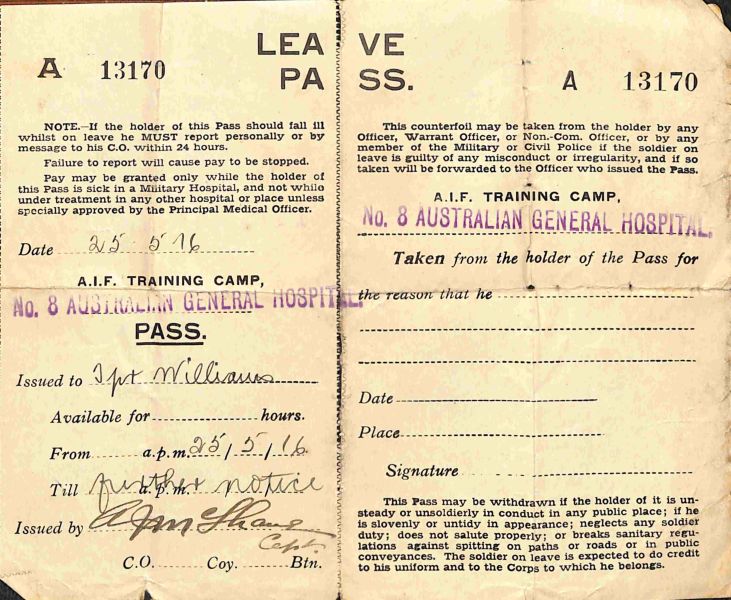 LEAVE
PASS.
A 13170
NOTE.—If the holder of this Pass should fall ill
whilst on leave he MUST report personally or by
message to his C.O. within 24 hours.
Failure to report will cause pay to be stopped.
Pay may be granted only while the holder of
this Pass is sick in a Military Hospital, and not while
under treatment in any other hospital or place unless
specially approved by the Principal Medical Officer.
Date 25 5 16
A.I.F. TRAINING CAMP,
No. 8 AUSTRALIAN GENERAL HOSPITAL.
PASS.
Issued to Tpr Williams
Available for hours.
From a.p.m. 25/5/16
Till a.p.m. further notice
Issued by A J McShane
Capt.
C.O. Coy. Btn.
A 13170
This counterfoil may be taken from the holder by any
Officer, Warrant Officer, or Non.-Com. Officer, or by any
member of the Military or Civil Police if the soldier on
leave is guilty of any misconduct or irregularity, and if so
taken will be forwarded to the Officer who issued the Pass.
A.I.F. TRAINING CAMP,
No. 8 AUSTRALIAN GENERAL HOSPITAL.
Taken from the holder of the Pass for
the reason that he
Date
Place
Signature
This Pass may be withdrawn if the holder of it is un-
steady or unsoldierly in conduct in any public place; if he
is slovenly or untidy in appearance; neglects any soldier
duty; does not salute properly; or breaks sanitary regu-
lations against spitting on paths or roads or in public
conveyances. The soldier on leave is expected to do credit
to his uniform and to the Corps to which he belongs.